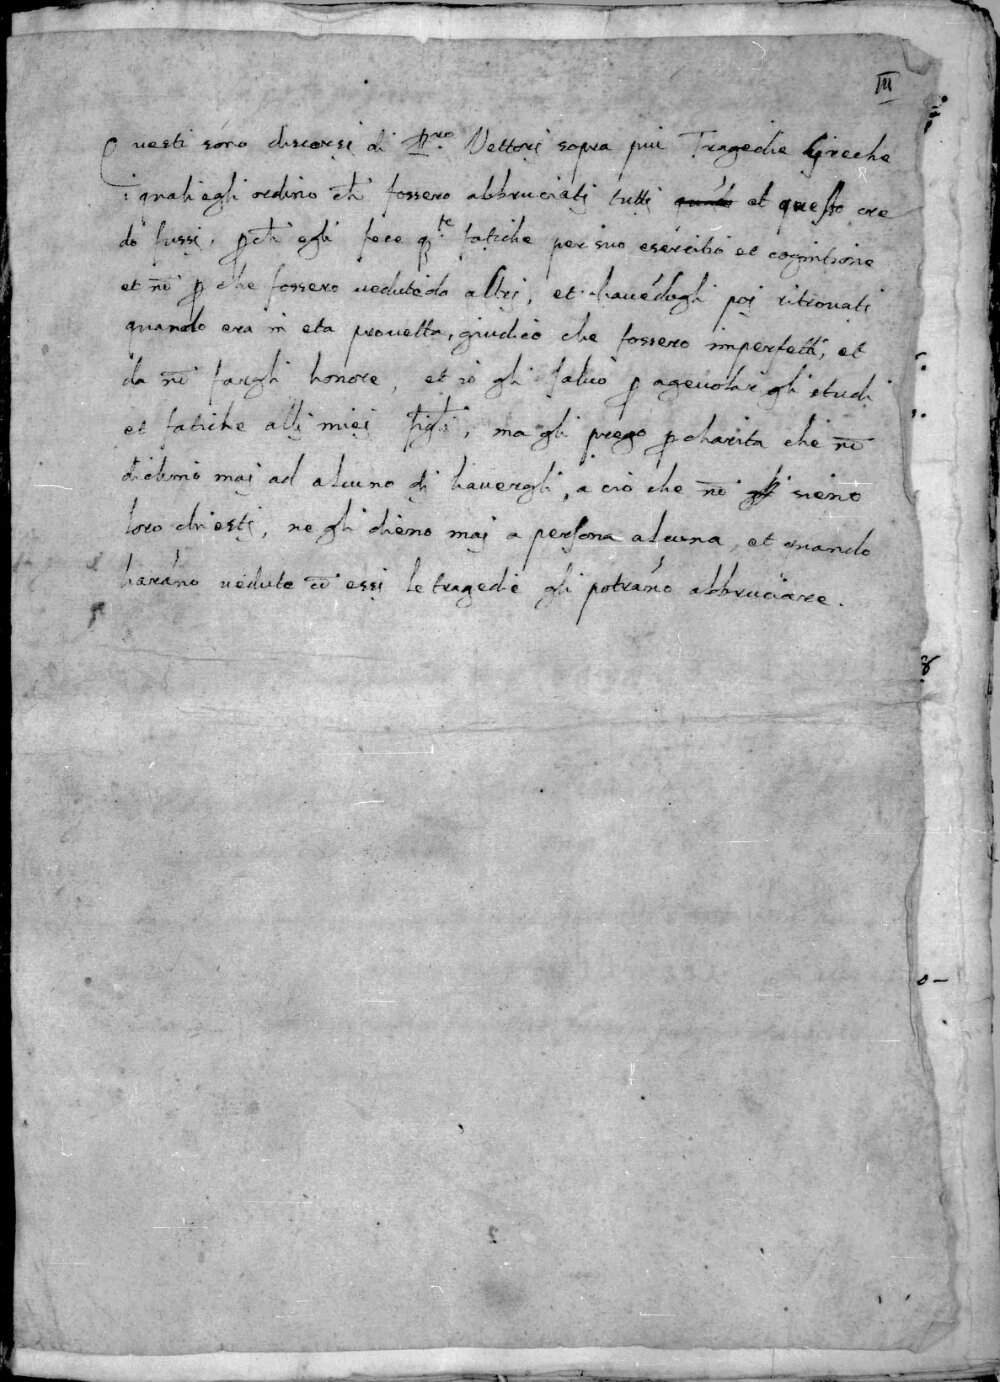 III
Questi sono discorsi di P.ro Vettorj sopra piu Tragedie Greche
i quali egli ordinò ch̄ fossero abbruciatj tuttj et questo cre
do fussj, ꝑch̄ egli fece q.te fatiche per suo esercitio et cognitione
et nō ꝑ che fossero vedute da altrj, et havēdogli poj ritrovati
quando era in eta provetta, giudicò che fossero imperfetti, et
da nō fargli honore, et io gli salvo ꝑ agevolar gli studj
et fatiche allj miej figli, ma gli prego ꝑ charita che nō
dichino maj ad alcuno dj havergli, a ciò che nō sieno
loro chiestj, ne gli dieno maj a persona alcuna, et quando
harāno vedute cō essj le tragedie gli potrāno abbruciare.